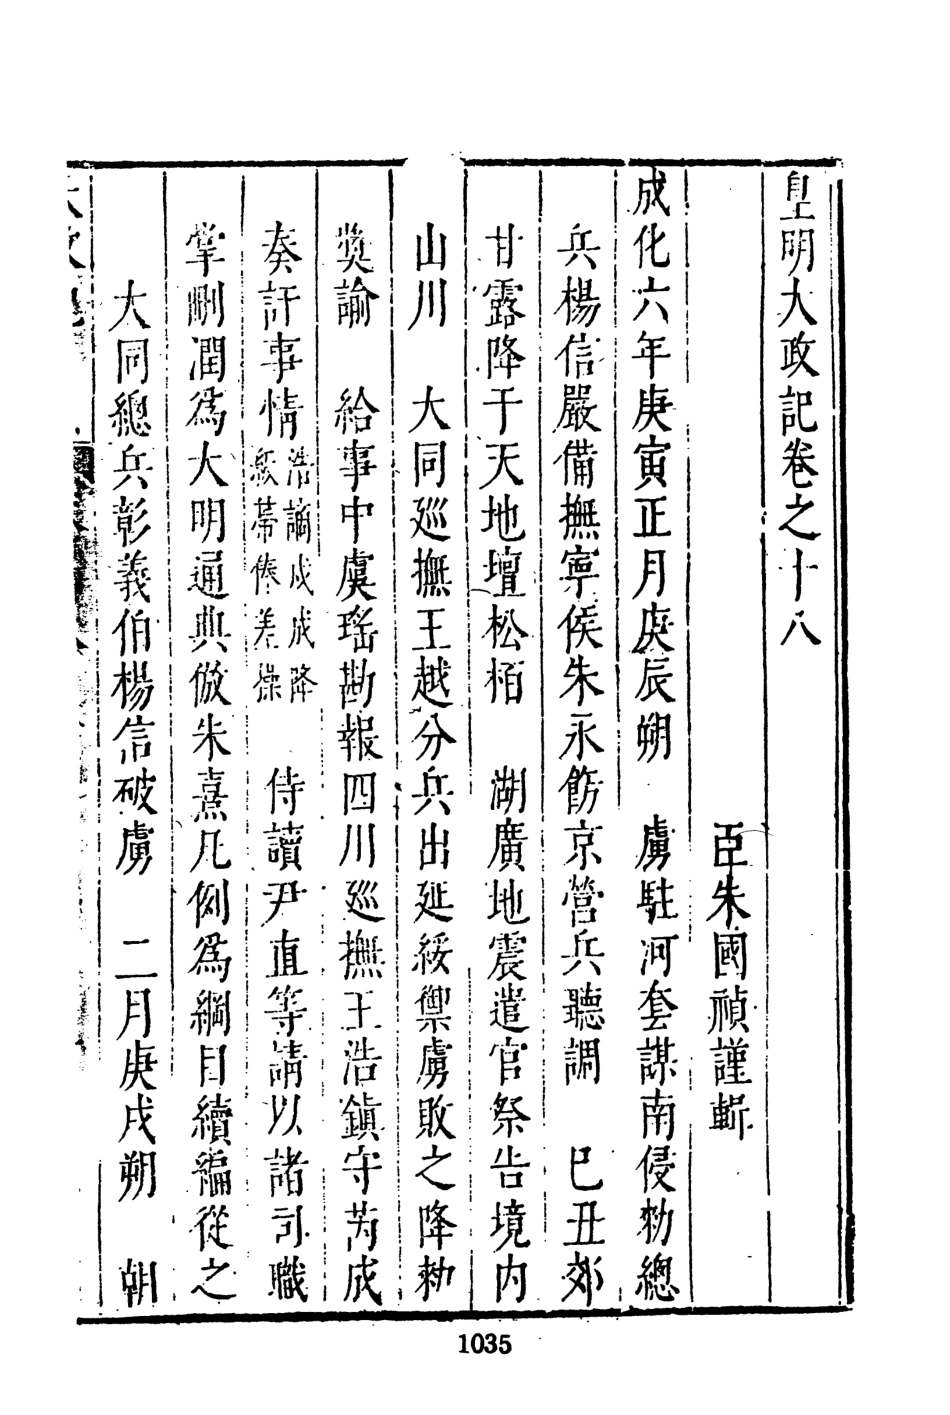 皇明大政記卷之十八
臣朱國禎謹輯
成化六年庚寅正月庚辰朔　虜駐河套謀南侵勑總
兵楊信嚴備撫寧侯朱永飭京營兵聽調　巳丑郊
甘露降于天地壇松栢　湖廣地震遣官祭告境内
山川　大同廵撫王越分兵出延綏禦虜敗之降勑
奬諭　給事中虞瑤勘報四川廵撫王浩鎭守芮成
奏訐事情浩謫戍成降級帶俸差操　侍讀尹直等請以諸司職
掌刪潤爲大明通典倣朱熹凡例爲綱目續編從之
大同總兵彰義伯楊信破虜　二月庚戌朔　朝
1035